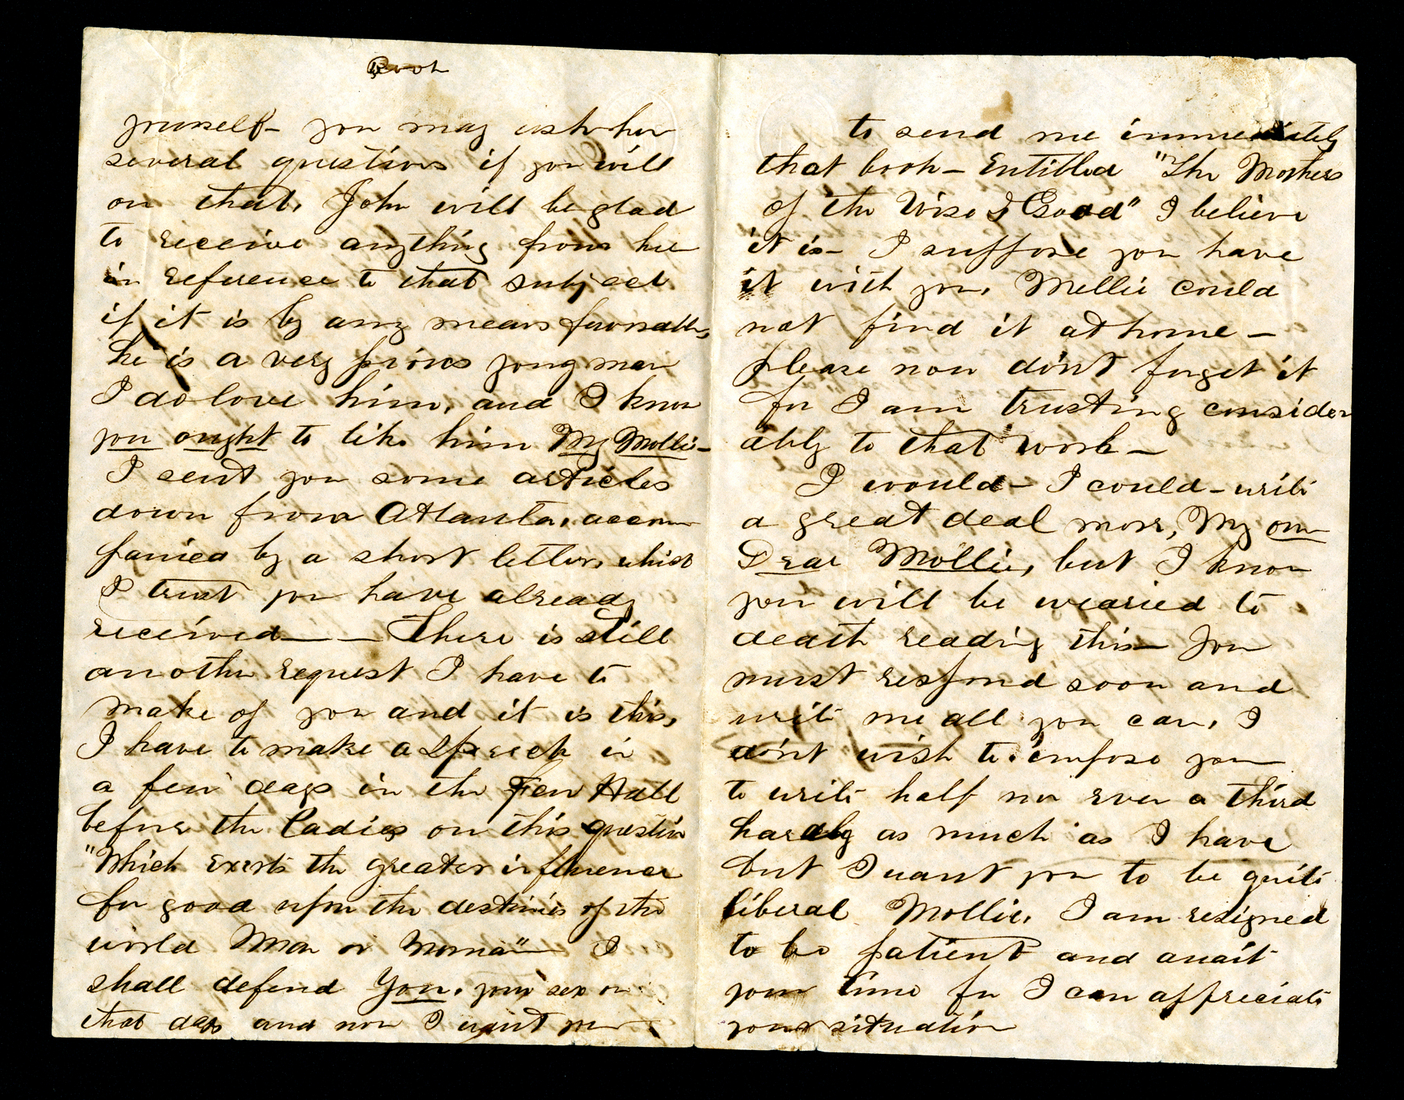 Book
yourself- you may ask her
several questions if you will
on that. John will be glad
to receive anything from her
in reference to that subject
if it is by any means favorable,
he is a very pious young man
I do love him, and I know
you ought to like him My Mollie-
I sent you some articles
down from Atlanta, accom-
panied by a short letter, which
I trust you have already
received — — There is still
another request I have to
make of you and it is this,
I have to make a Speech in
a few days in the Few Hall
before the Ladies on this question
"Which exerts the greater influence
for good upon the destinies of the
world Man or Woman" — I
shall defend You. your sex on
that day and now I want you
to send me immediately
that book - Entitled "The Mothers
of the Wise & Good" I believe
it is - I suppose you have
it with you. Mellie could
not find it at home -
please now don't forget it
for I am trusting consider
ably to that work -
I would - I could - write
a great deal more, My own
Dear Mollie, but I know
you will be wearied to
death reading this - You
must respond soon and
write me all you can, I
don't wish to impose you
to write half nor even a third
hardly as much as I have
but I want you to be quite
liberal Mollie. I am resigned
to be patient and await
your time for I can appreciate
your situation